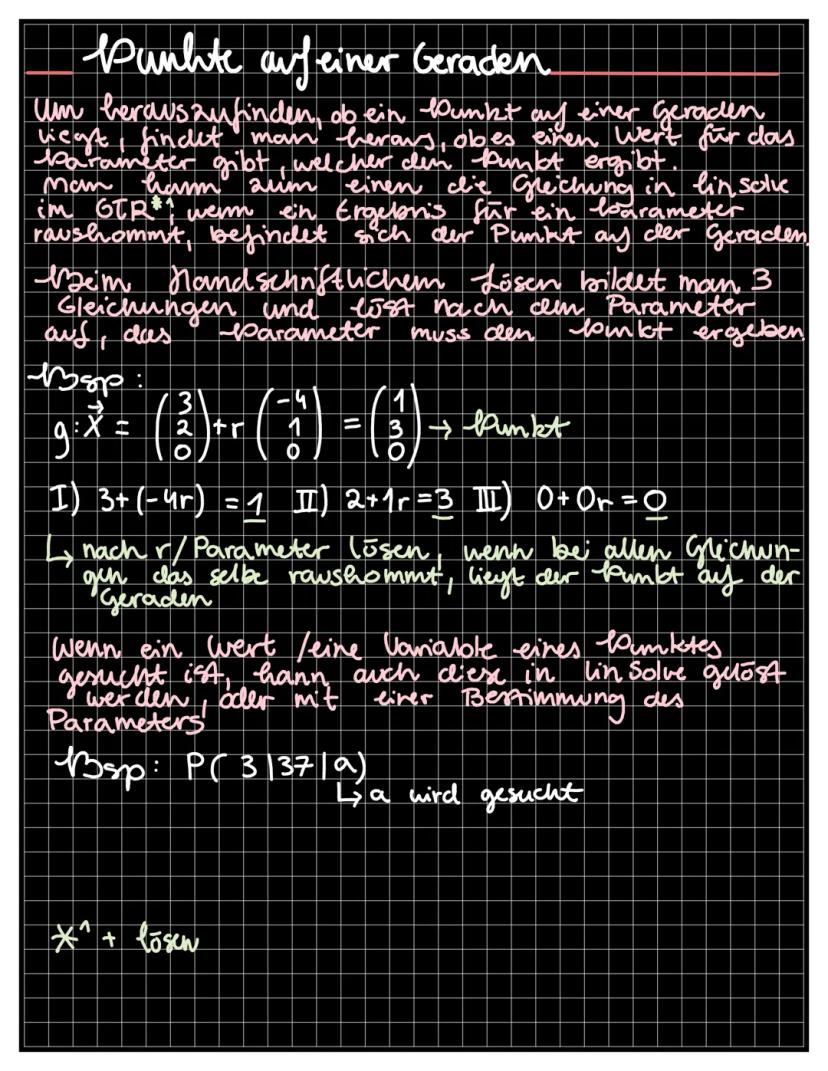 Punkte auf einer Geraden
Um herauszufinden, ob ein Punkt auf einer Geraden
liegt, findet man heraus, ob es einen Wert für das
Parameter gibt, welcher den Punkt ergibt.
Man kann zum einen die Gleichung in linsolve
im GTR*¹, wenn ein Ergebnis für ein Parameter
rauskommt, befindet sich der Punkt auf der Geraden.
Beim Handschriftlichem Lösen bildet man 3
Gleichungen und löst nach dem Parameter
auf, das Parameter muss den Punkt ergeben
Bsp:
g: x⃗ = (3 2 0) + r (-4 1 0) = (1 3 0) → Punkt
I) 3+(-4r) = 1 II) 2+1r = 3 III) 0+0r = 0
↳ nach r/Parameter lösen, wenn bei allen Gleichun-
gen das selbe rauskommt, liegt der Punkt auf der
Geraden
Wenn ein Wert /eine Variable eines Punktes
gesucht ist, kann auch diese in linSolve gelöst
werden, oder mit einer Bestimmung des
Parameters
Bsp: P( 3 | 37 | a)
↳ a wird gesucht
*¹ + lösen